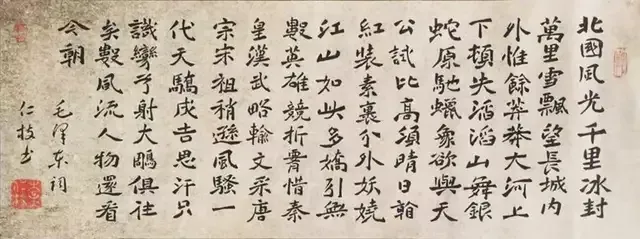 北國風光千里冰封
萬里雪飄望長城內
外惟餘莽莽大河上
下頓失滔滔山舞銀
蛇原馳蠟象欲與天
公試比高須晴日
紅裝素裹分外妖嬈
江山如此多嬌引無
數英雄競折腰惜秦
皇漢武略輸文采唐
宗宋祖稍遜風騷一
代天驕成吉思汗只
識彎弓射大鵰俱往
矣數風流人物還看
今朝
毛澤東詞
仁枝書